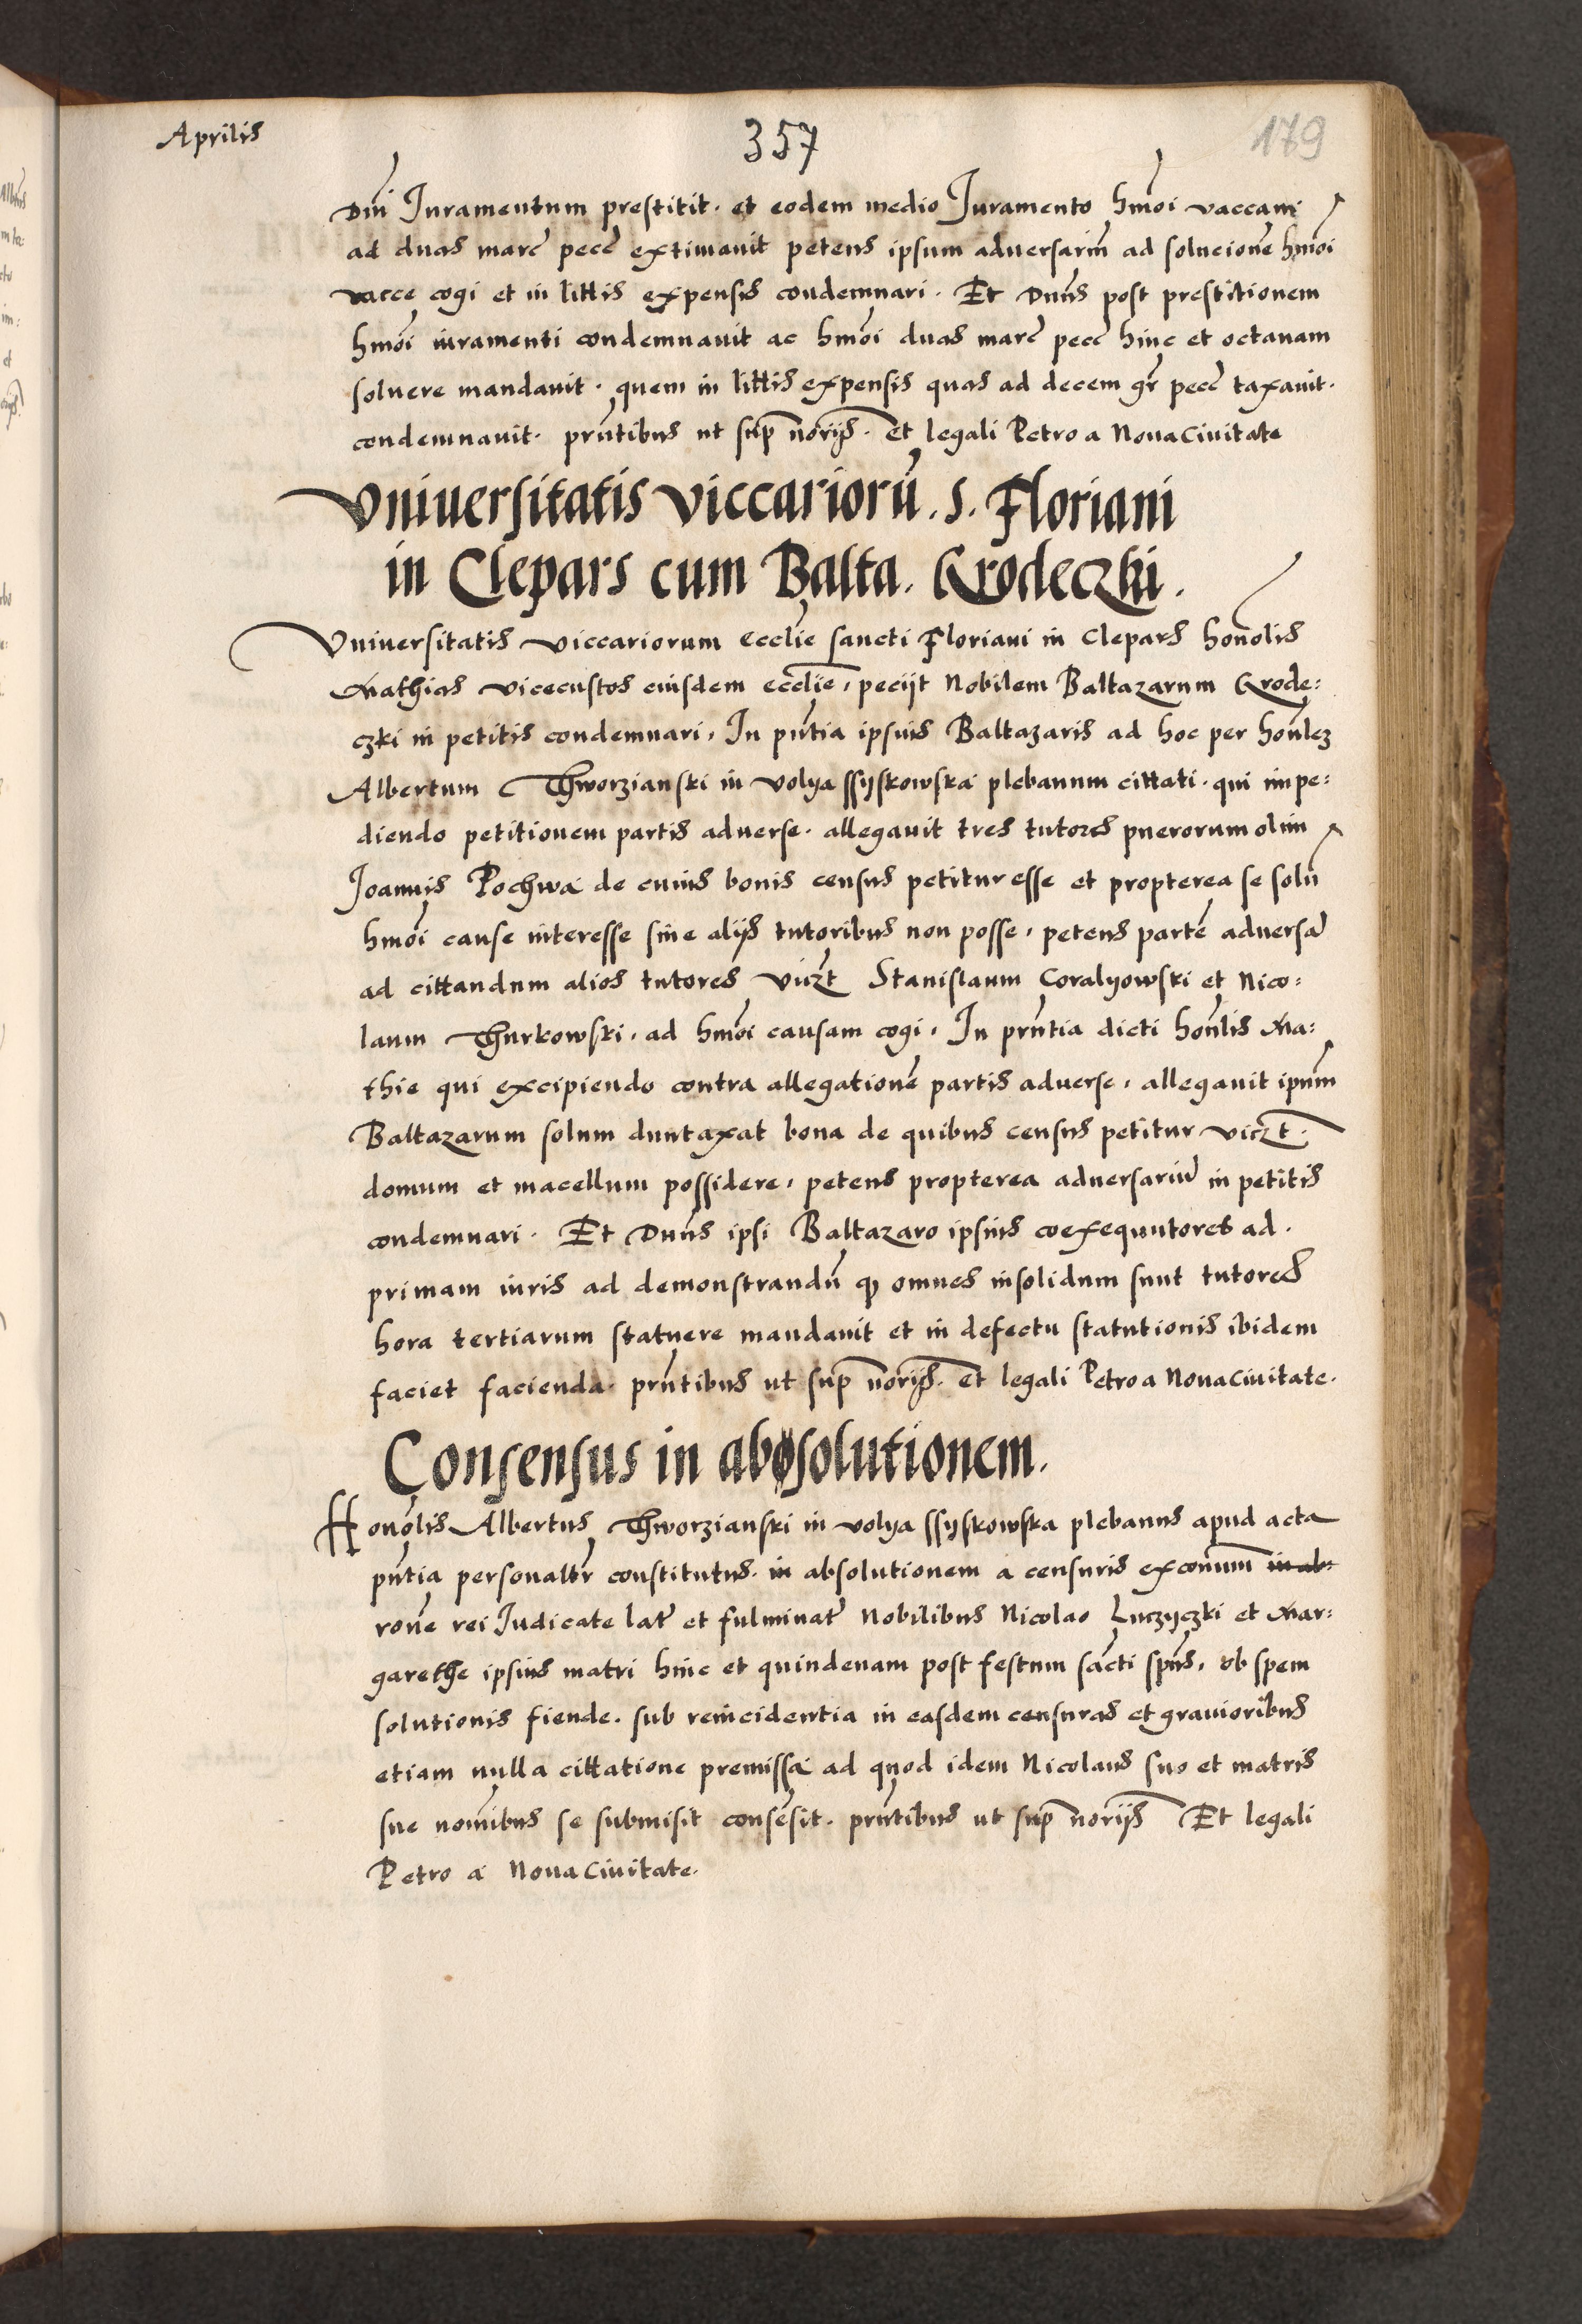 Aprilis
357
179
Dni Iuramentum prestitit. et eodem medio Iuramento hmoi vaccam
ad duas marc pecc extimauit petens ipsum aduersariu ad solucione hmoi
vacce cogi et in littis expensis condemnari. Et Dnus post prestitionem
hmoi iuramenti condemnauit ac hmoi duas marc pecc hinc et octauam
soluere mandauit. quem in littis expensis quas ad decem gr pecc taxauit.
condemnauit. prntibus ut sup norijs. et legali Petro a Noua Ciuitate
Vniuersitatis viccariorū. S. Floriani
in Clepars cum Balta. Grodeczki.
Vniuersitatis viccariorum Ecclie sancti Floriani in Clepars honolis
Mathias vicecustos eiusdem ecclie, pecijt Nobilem Baltazarum Grode:
czki in petitis condemnari, In pntia ipsius Baltazaris ad hoc per honlez
Albertum Thworzianski in Volya ssyskowska plebanum cittati. qui impe:
diendo petitionem partis aduerse. allegauit tres tutores puerorum olim
Joannis Pochwa de cuius bonis census petitur esse et propterea se solū
hmoi cause interesse sine alijs tutoribus non posse, petens partē aduersā
ad cittandum alios tutores viczt Stanislaum Coralyowski et Nico:
laum Thurkowski, ad hmoi causam cogi, In prntia dicti honlis Ma:
thie qui excipiendo contra allegationē partis aduerse, allegauit ipsum
Baltazarum solum duntaxat bona de quibus census petitur viczt.
domum et macellum possidere, petens propterea aduersariū in petitis
condemnari. Et Dnus ipsi Baltazaro ipsius coexequutores ad.
primam iuris ad demonstrandū qp omnes insolidum sunt tutores
hora tertiarum statuere mandauit et in defectu statutionis ibidem
faciet facienda. prntibus ut sup norijs. et legali Petro a Noua Ciuitate.
Consensus in absolutionem.
Honolis Albertus Thworzianski in volya ssyskowska plebanus apud acta
pntia personaltr constitutus. in absolutionem a censuris exconum in ab:
rone rei Iudicate lat et fulminat Nobilibus Nicolao Luczyczki et Mar:
garethe ipsius matri hinc et quindenam post festum sācti spūs, ob spem
solutionis fiende. sub reincidentia in easdem censuras et grauioribus
etiam nulla cittatione premissa ad quod idem Nicolaus suo et matris
sue nomibus se submisit consēsit. prntibus ut sup norijs Et legali
Petro a Noua Ciuitate.